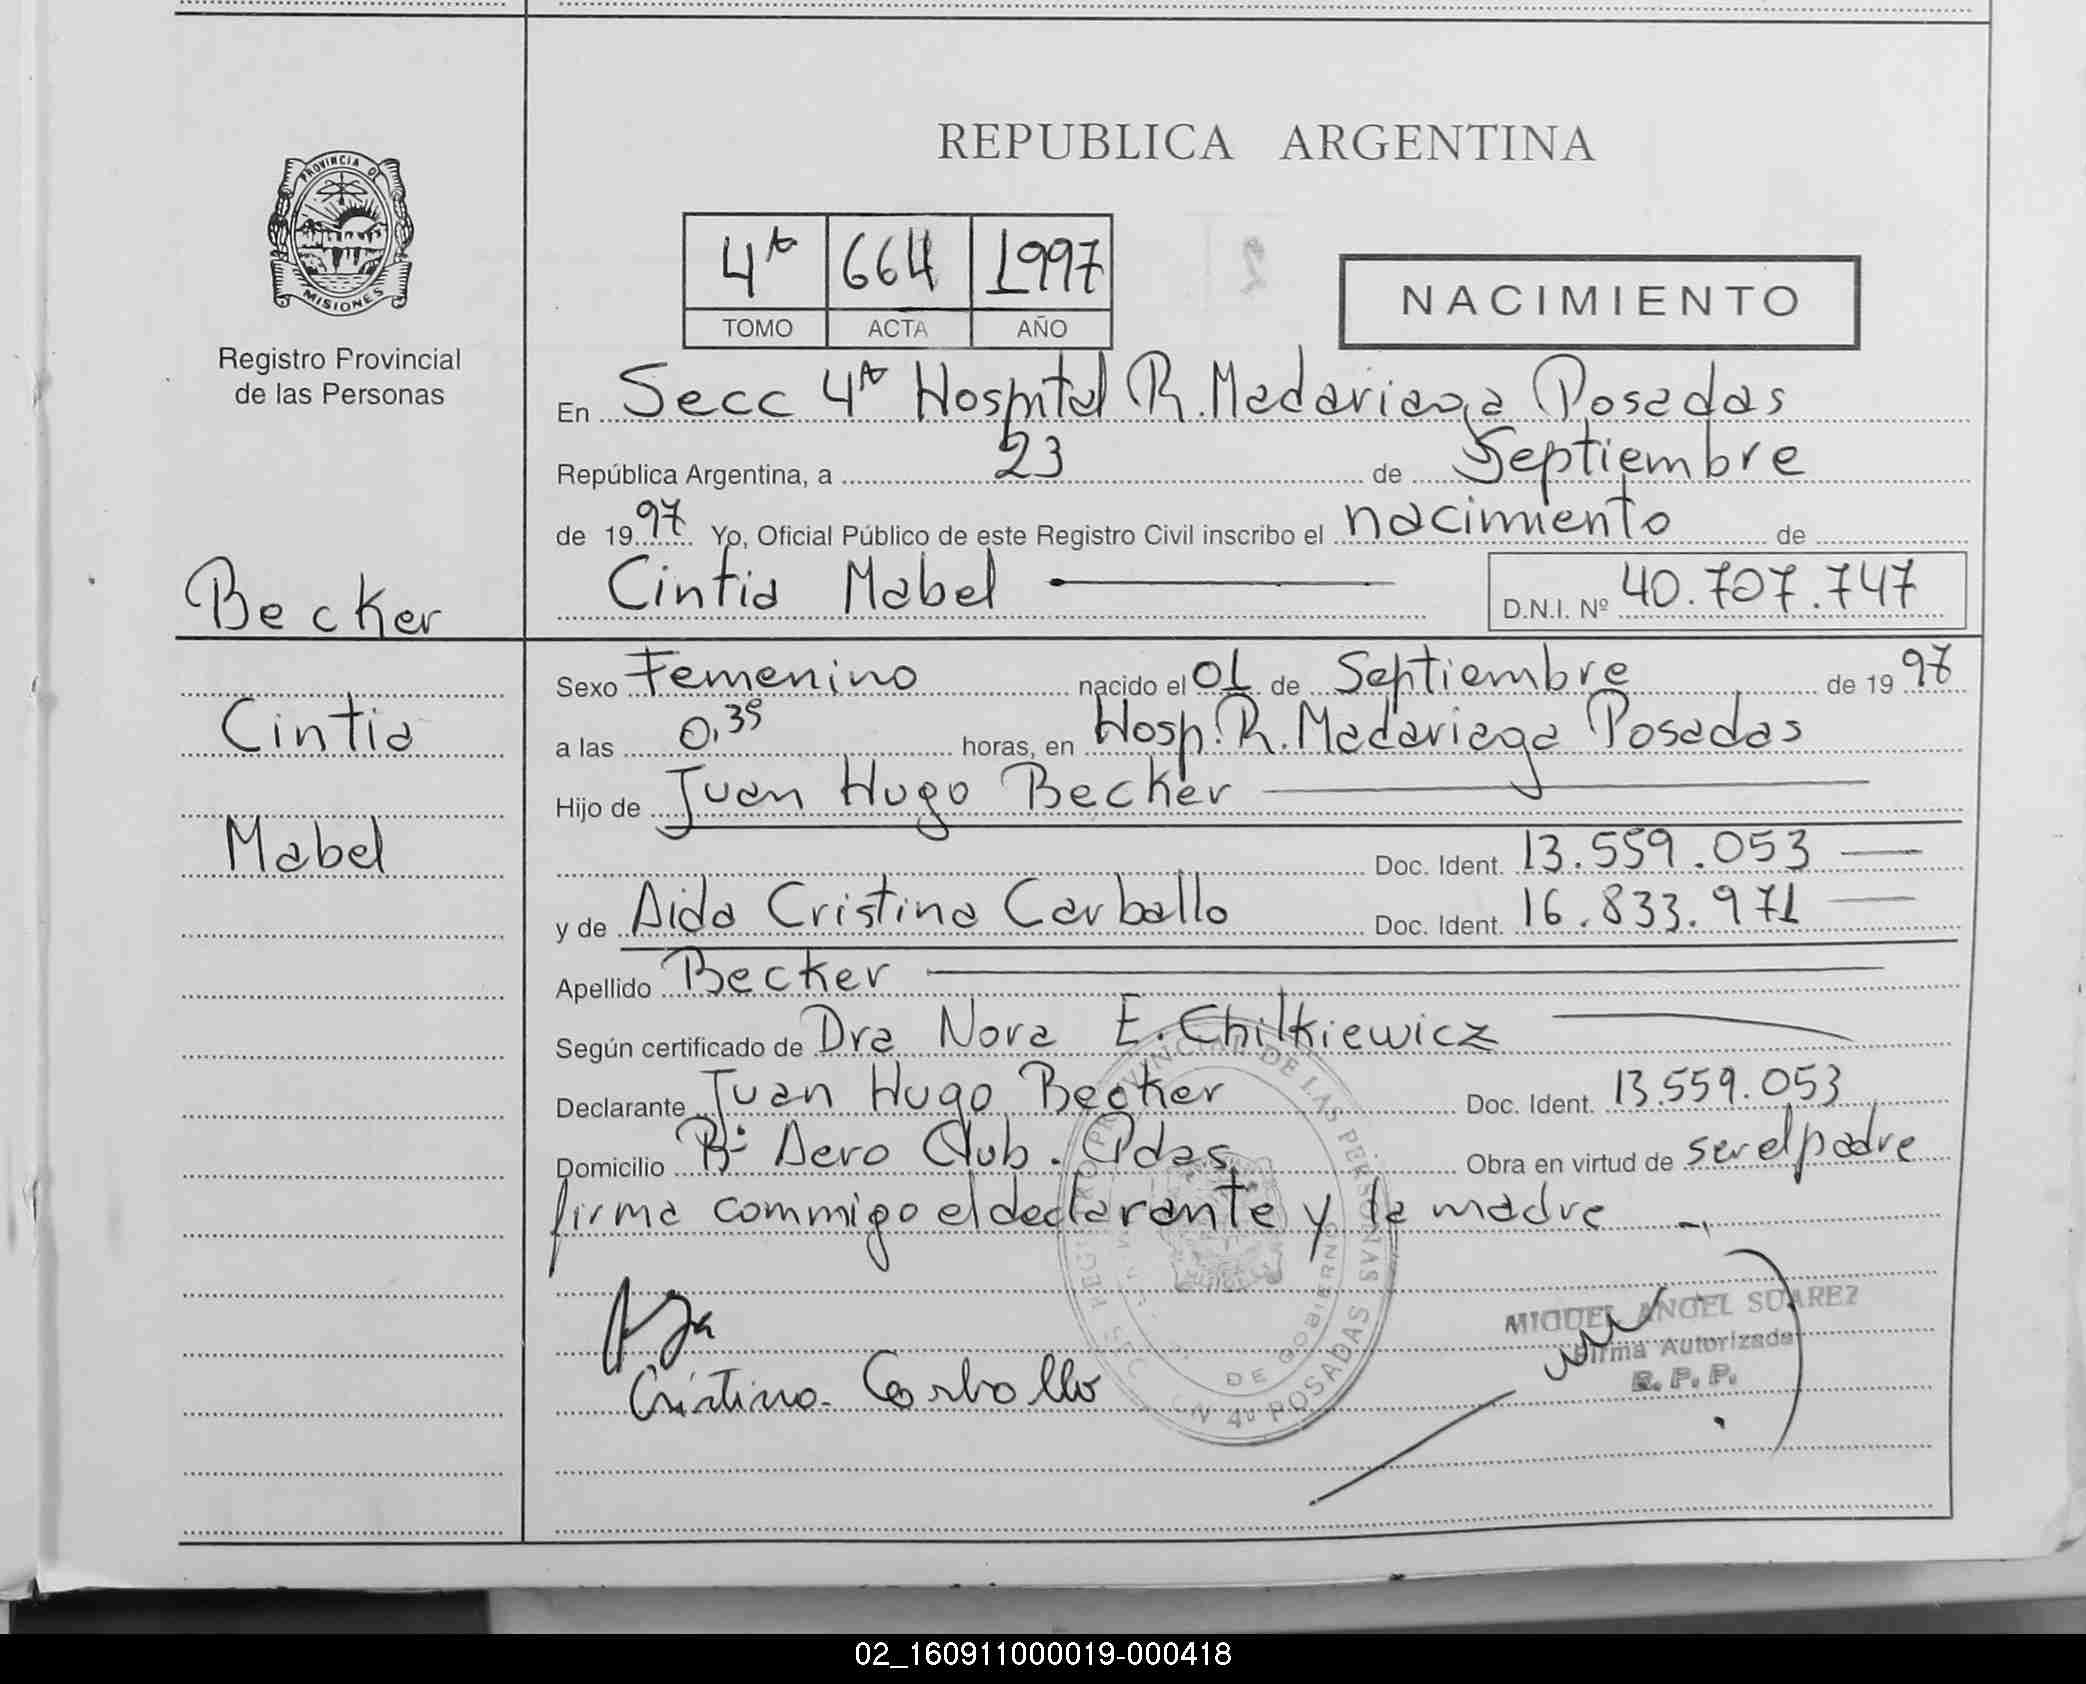 REPUBLICA ARGENTINA
PROVINCIA DE
MISIONES
Registro Provincial
de las Personas
4ta 664 1997
TOMO ACTA AÑO
NACIMIENTO
En Secc 4ta Hospital R. Madariaga Posadas
República Argentina, a 23 de Septiembre
de 1997 Yo, Oficial Público de este Registro Civil inscribo el nacimiento de
Cintia Mabel D.N.I. Nº 40.707.747
Becker
Cintia
Mabel
Sexo Femenino nacido el 01 de Septiembre de 1997
a las 0,35 horas, en Hosp. R. Madariaga Posadas
Hijo de Juan Hugo Becker
Doc. Ident. 13.559.053
y de Aida Cristina Carballo Doc. Ident. 16.833.971
Apellido Becker
Según certificado de Dra Nora E. Chilkiewicz
Declarante Juan Hugo Becker Doc. Ident. 13.559.053
Domicilio Bº Aero Club. Pdas. Obra en virtud de ser el padre
firma commigo el declarante y la madre
REGISTRO PROVINCIAL DE LAS PERSONAS
DE GOBIERNO
4º POSADAS
MIGUEL ANGEL SUAREZ
Firma Autorizada
R. P. P.
Cristina Carballo
02_160911000019-000418